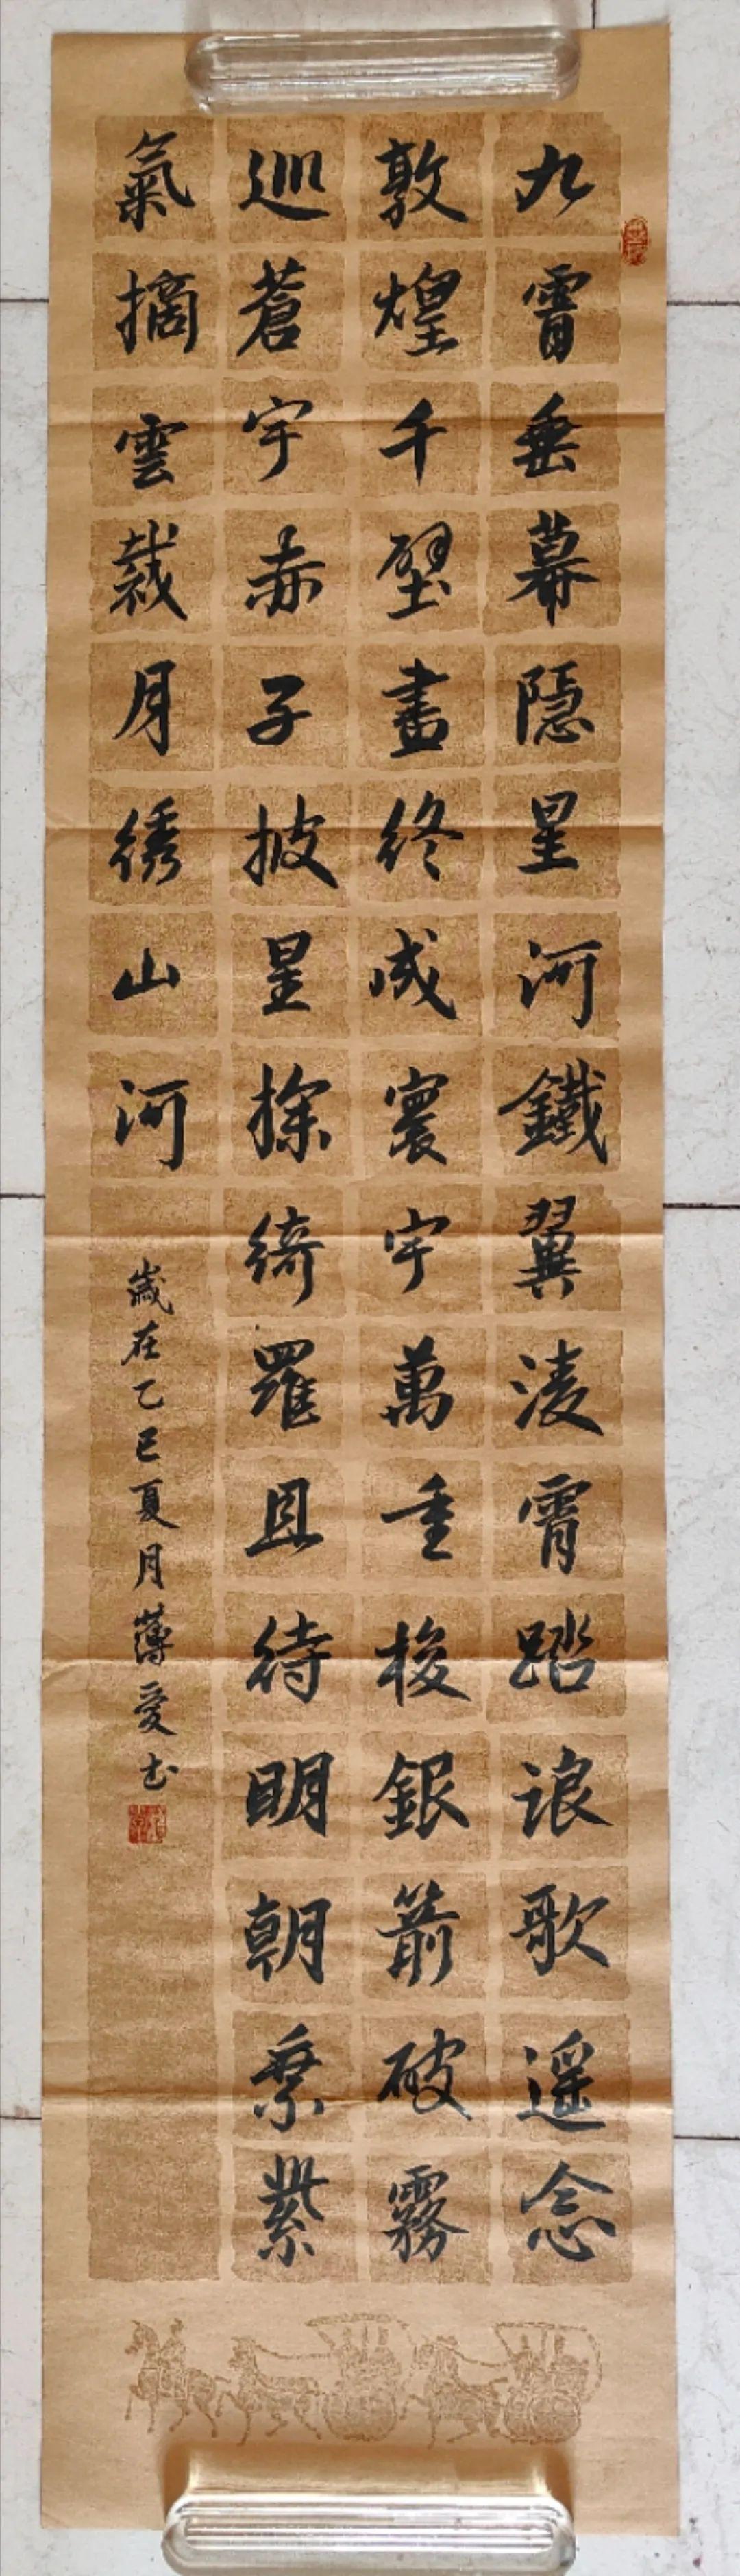 九霄垂幕隱星河鐵翼淩霄踏浪歌遥念
敦煌千壁畫終成寰宇萬重梭銀箭破霧
巡蒼宇赤子披星探綺羅且待明朝乘紫
氣摘雲裁月綉山河
歲在乙巳夏月薄愛书